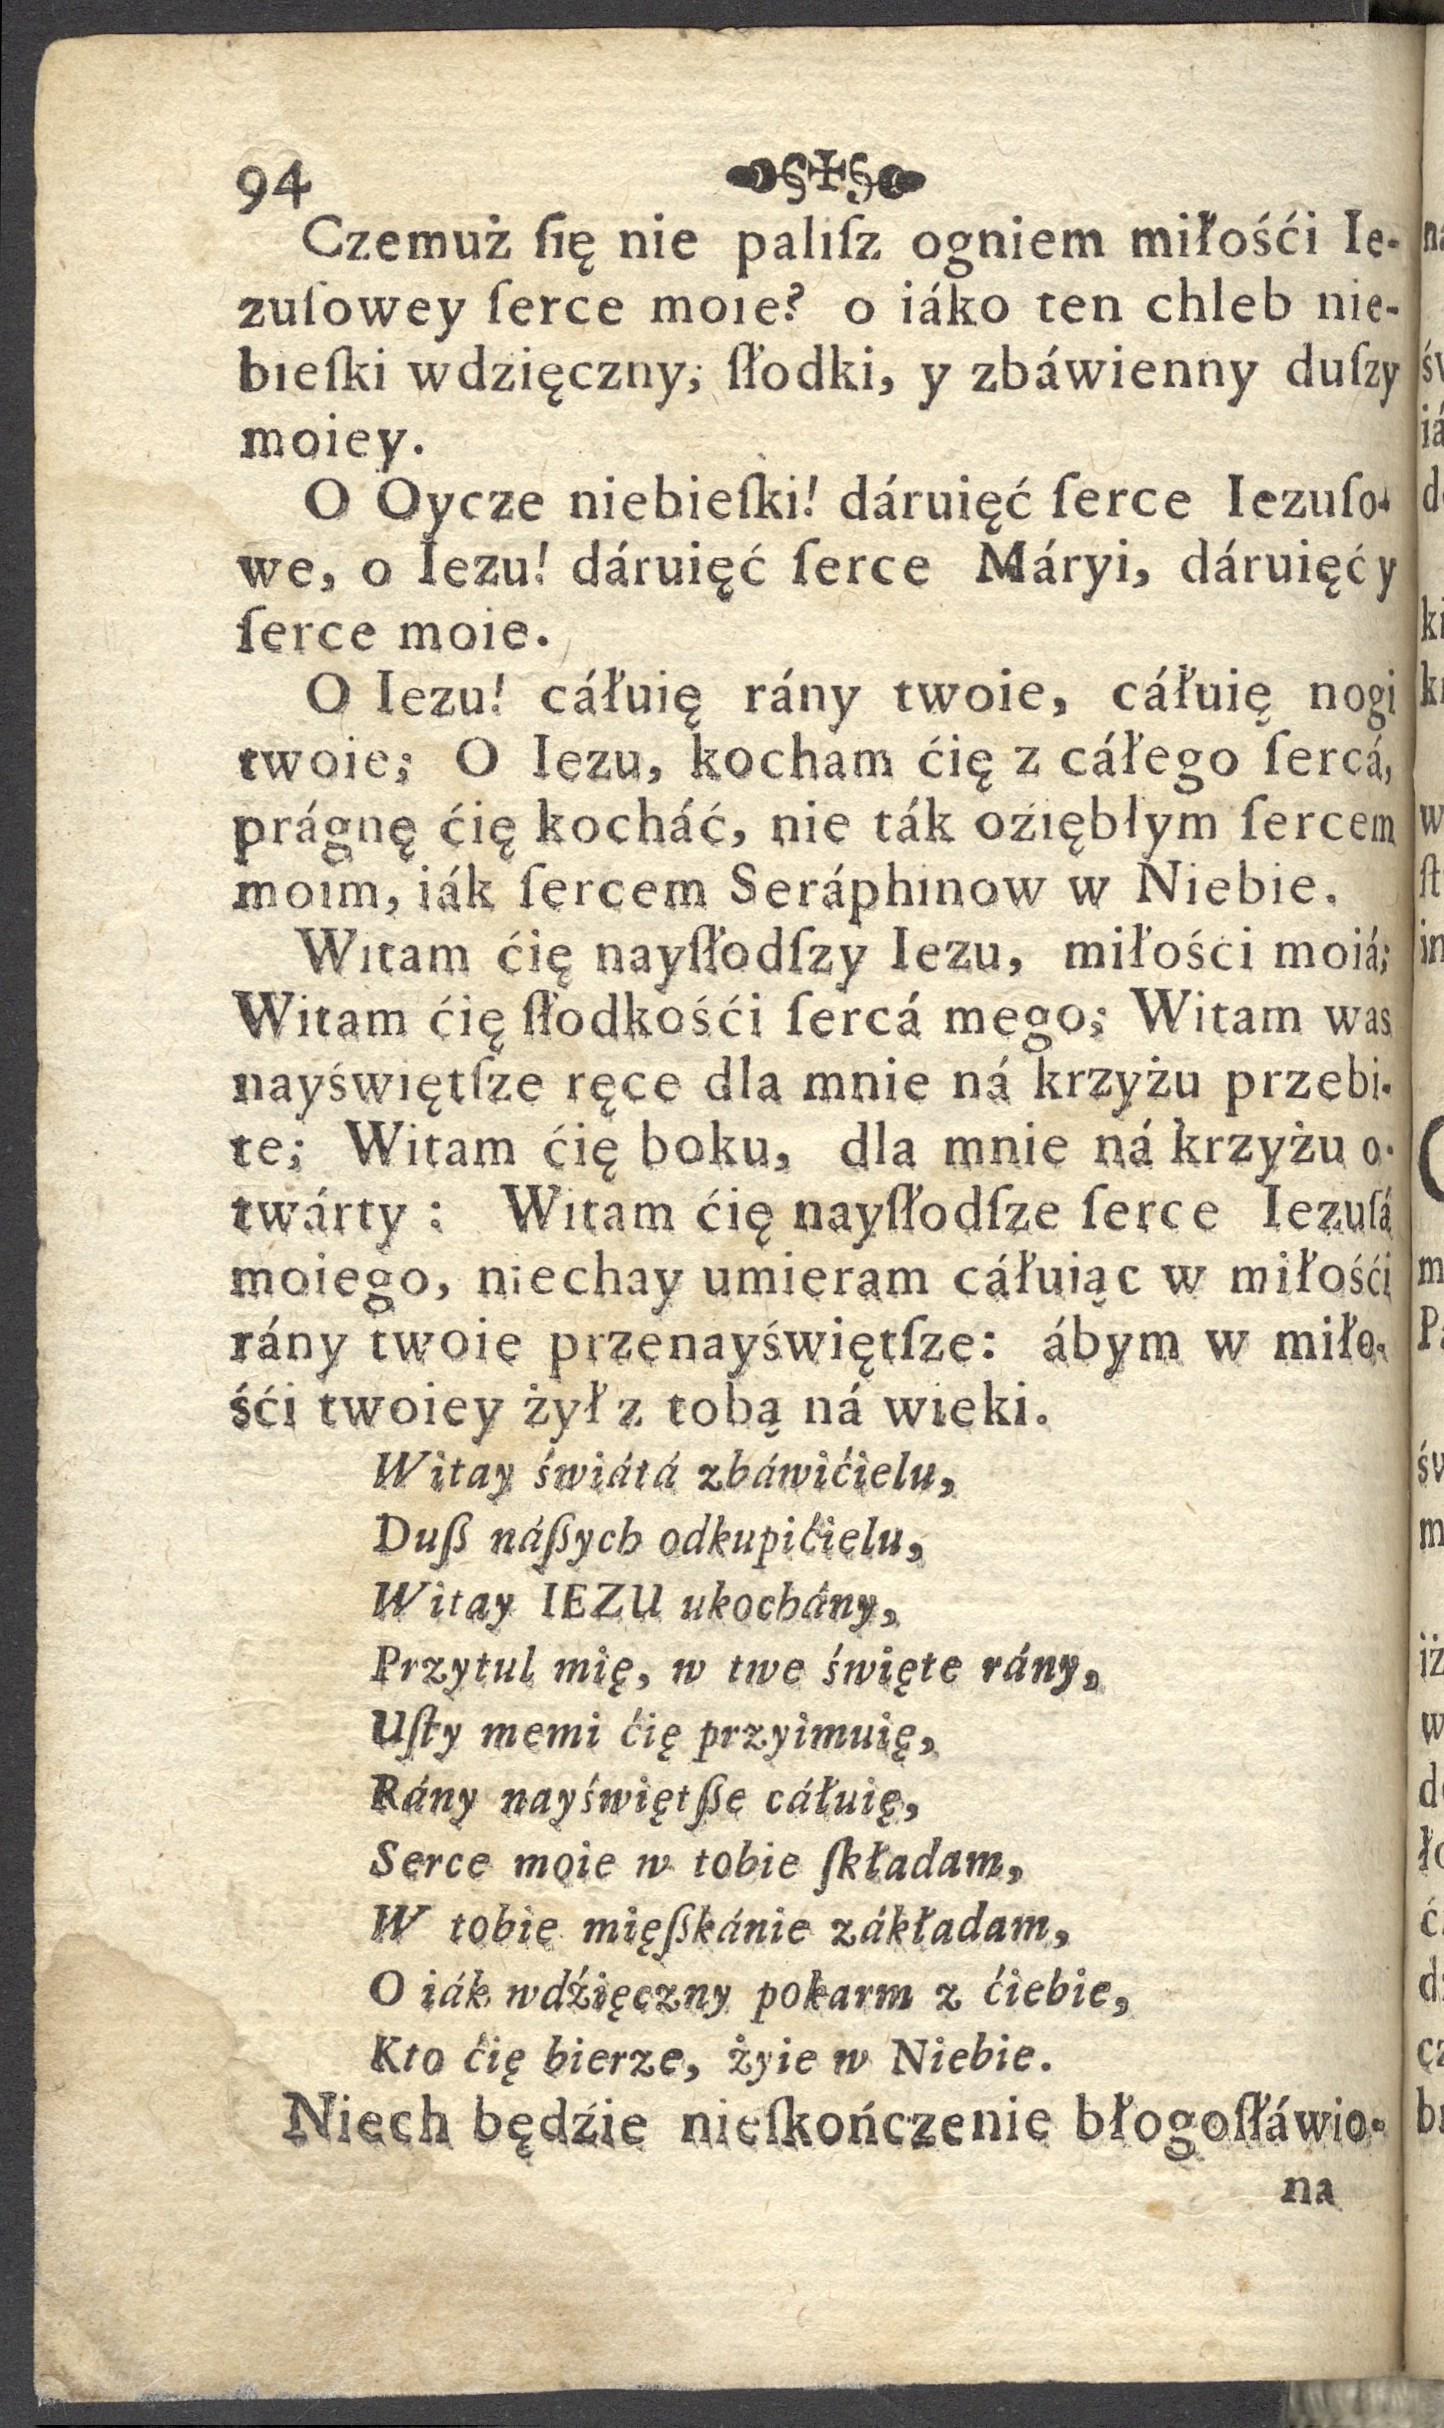 94
Czemuż ſię nie paliſz ogniem miłośći Ie-
zuſowey ſerce moie? o iáko ten chleb nie-
bieſki wdzięczny, ſłodki, y zbáwienny duſzy
moiey.
O Oycze niebieſki! dáruięć ſerce Iezuſo-
we, o Iezu! dáruięć ſerce Máryi, dáruięć y
ſerce moie.
O Iezu! cáłuię rány twoie, cáłuię nogi
twoie; O Iezu, kocham ćię z cáłego ſercá,
prágnę ćię kocháć, nie ták oźiębłym ſercem
moim, iák ſercem Seráphinow w Niebie.
Witam ćię nayſłodſzy Iezu, miłośći moiá;
Witam ćię ſłodkośći ſercá mego; Witam was
nayświętſze ręce dla mnie ná krzyżu przebi-
te; Witam ćię boku, dla mnie ná krzyżu o-
twárty: Witam ćię nayſłodſze ſerce Iezuſá
moiego, niechay umieram cáłuiąc w miłośći
rány twoie przenayświętſze: ábym w miło-
śći twoiey żył z tobą ná wieki.
Witay świátá zbáwićielu,
Duß náßych odkupićielu,
Witay IEZU ukochány,
Przytul mię, w twe święte rány,
Uſty memi ćię przyimuię,
Rány nayświętße cáłuię,
Serce moie w tobie ſkładam,
W tobie mięßkánie zákładam,
O iák wdźięczny pokarm z ćiebie,
Kto ćię bierze, żyie w Niebie.
Niech będźie nieſkończenie błogoſłáwio-
na